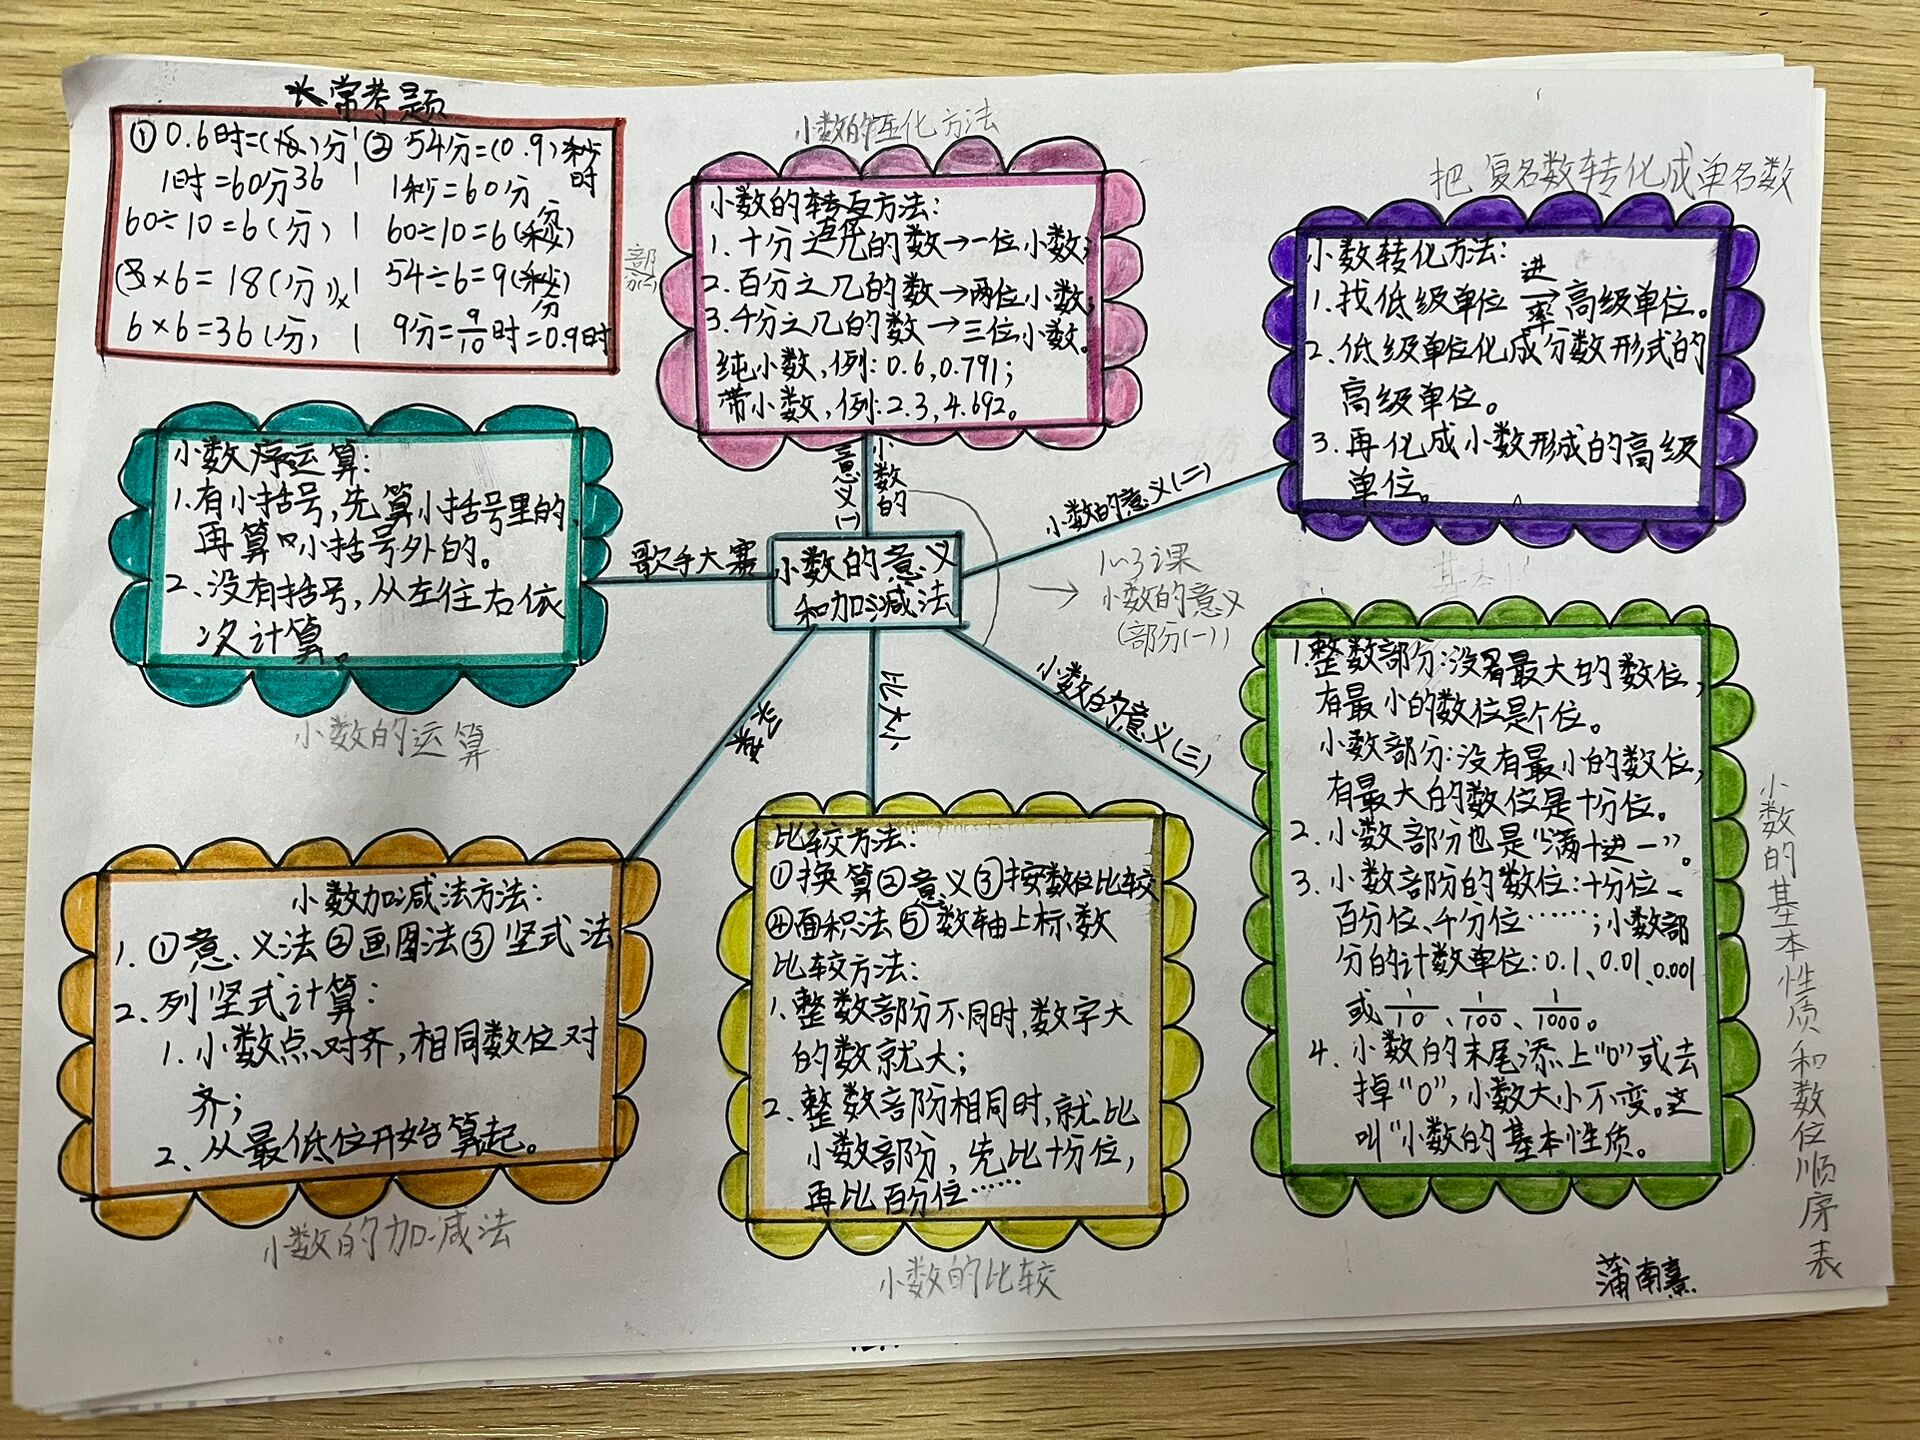 常考题
①0.6时=( )分
1时=60分 36
60÷10=6(分)
3×6=18(分)×
6×6=36(分)
②54分=(0.9)时
1秒=60分
60÷10=6(分)
54÷6=9(分)
9分=9/10时=0.9时
小数的互化方法
部分(二)
小数的转互方法:
1.十分之几的数→一位小数;
2.百分之几的数→两位小数;
3.千分之几的数→三位小数。
纯小数,例:0.6,0.791;
带小数,例:2.3,4.692。
小数的
意义(一)
把复名数转化成单名数
小数转化方法:
1.找低级单位 进率→ 高级单位。
2.低级单位化成分数形式的
高级单位。
3.再化成小数形成的高级
单位。
小数的意义(二)
小数序运算:
1.有小括号,先算小括号里的,
再算小括号外的。
2.没有括号,从左往右依
次计算。
小数的运算
歌手大赛
小数的意义
和加减法
→ 1~3课
小数的意义
(部分(一))
小数的意义(三)
1.整数部分:没有最大的数位,
有最小的数位是个位。
小数部分:没有最小的数位,
有最大的数位是十分位。
2.小数部分也是“满十进一”。
3.小数部份的数位:十分位、
百分位、千分位……;小数部
分的计数单位:0.1、0.01、0.001
或1/10、1/100、1/1000。
4.小数的末尾添上“0”或去
掉“0”,小数大小不变。这
叫“小数的基本性质。
小数的基本性质和数位顺序表
买菜
小数加减法方法:
1.①意义法②画图法③竖式法
2.列竖式计算:
1.小数点对齐,相同数位对
齐;
2.从最低位开始算起。
小数的加减法
比大小
比较方法:
①换算②意义③按数位比较
④面积法⑤数轴上标小数
比较方法:
1.整数部份不同时,数字大
的数就大;
2.整数部份相同时,就比
小数部份,先比十分位,
再比百分位……
小数的比较
蒲南熹